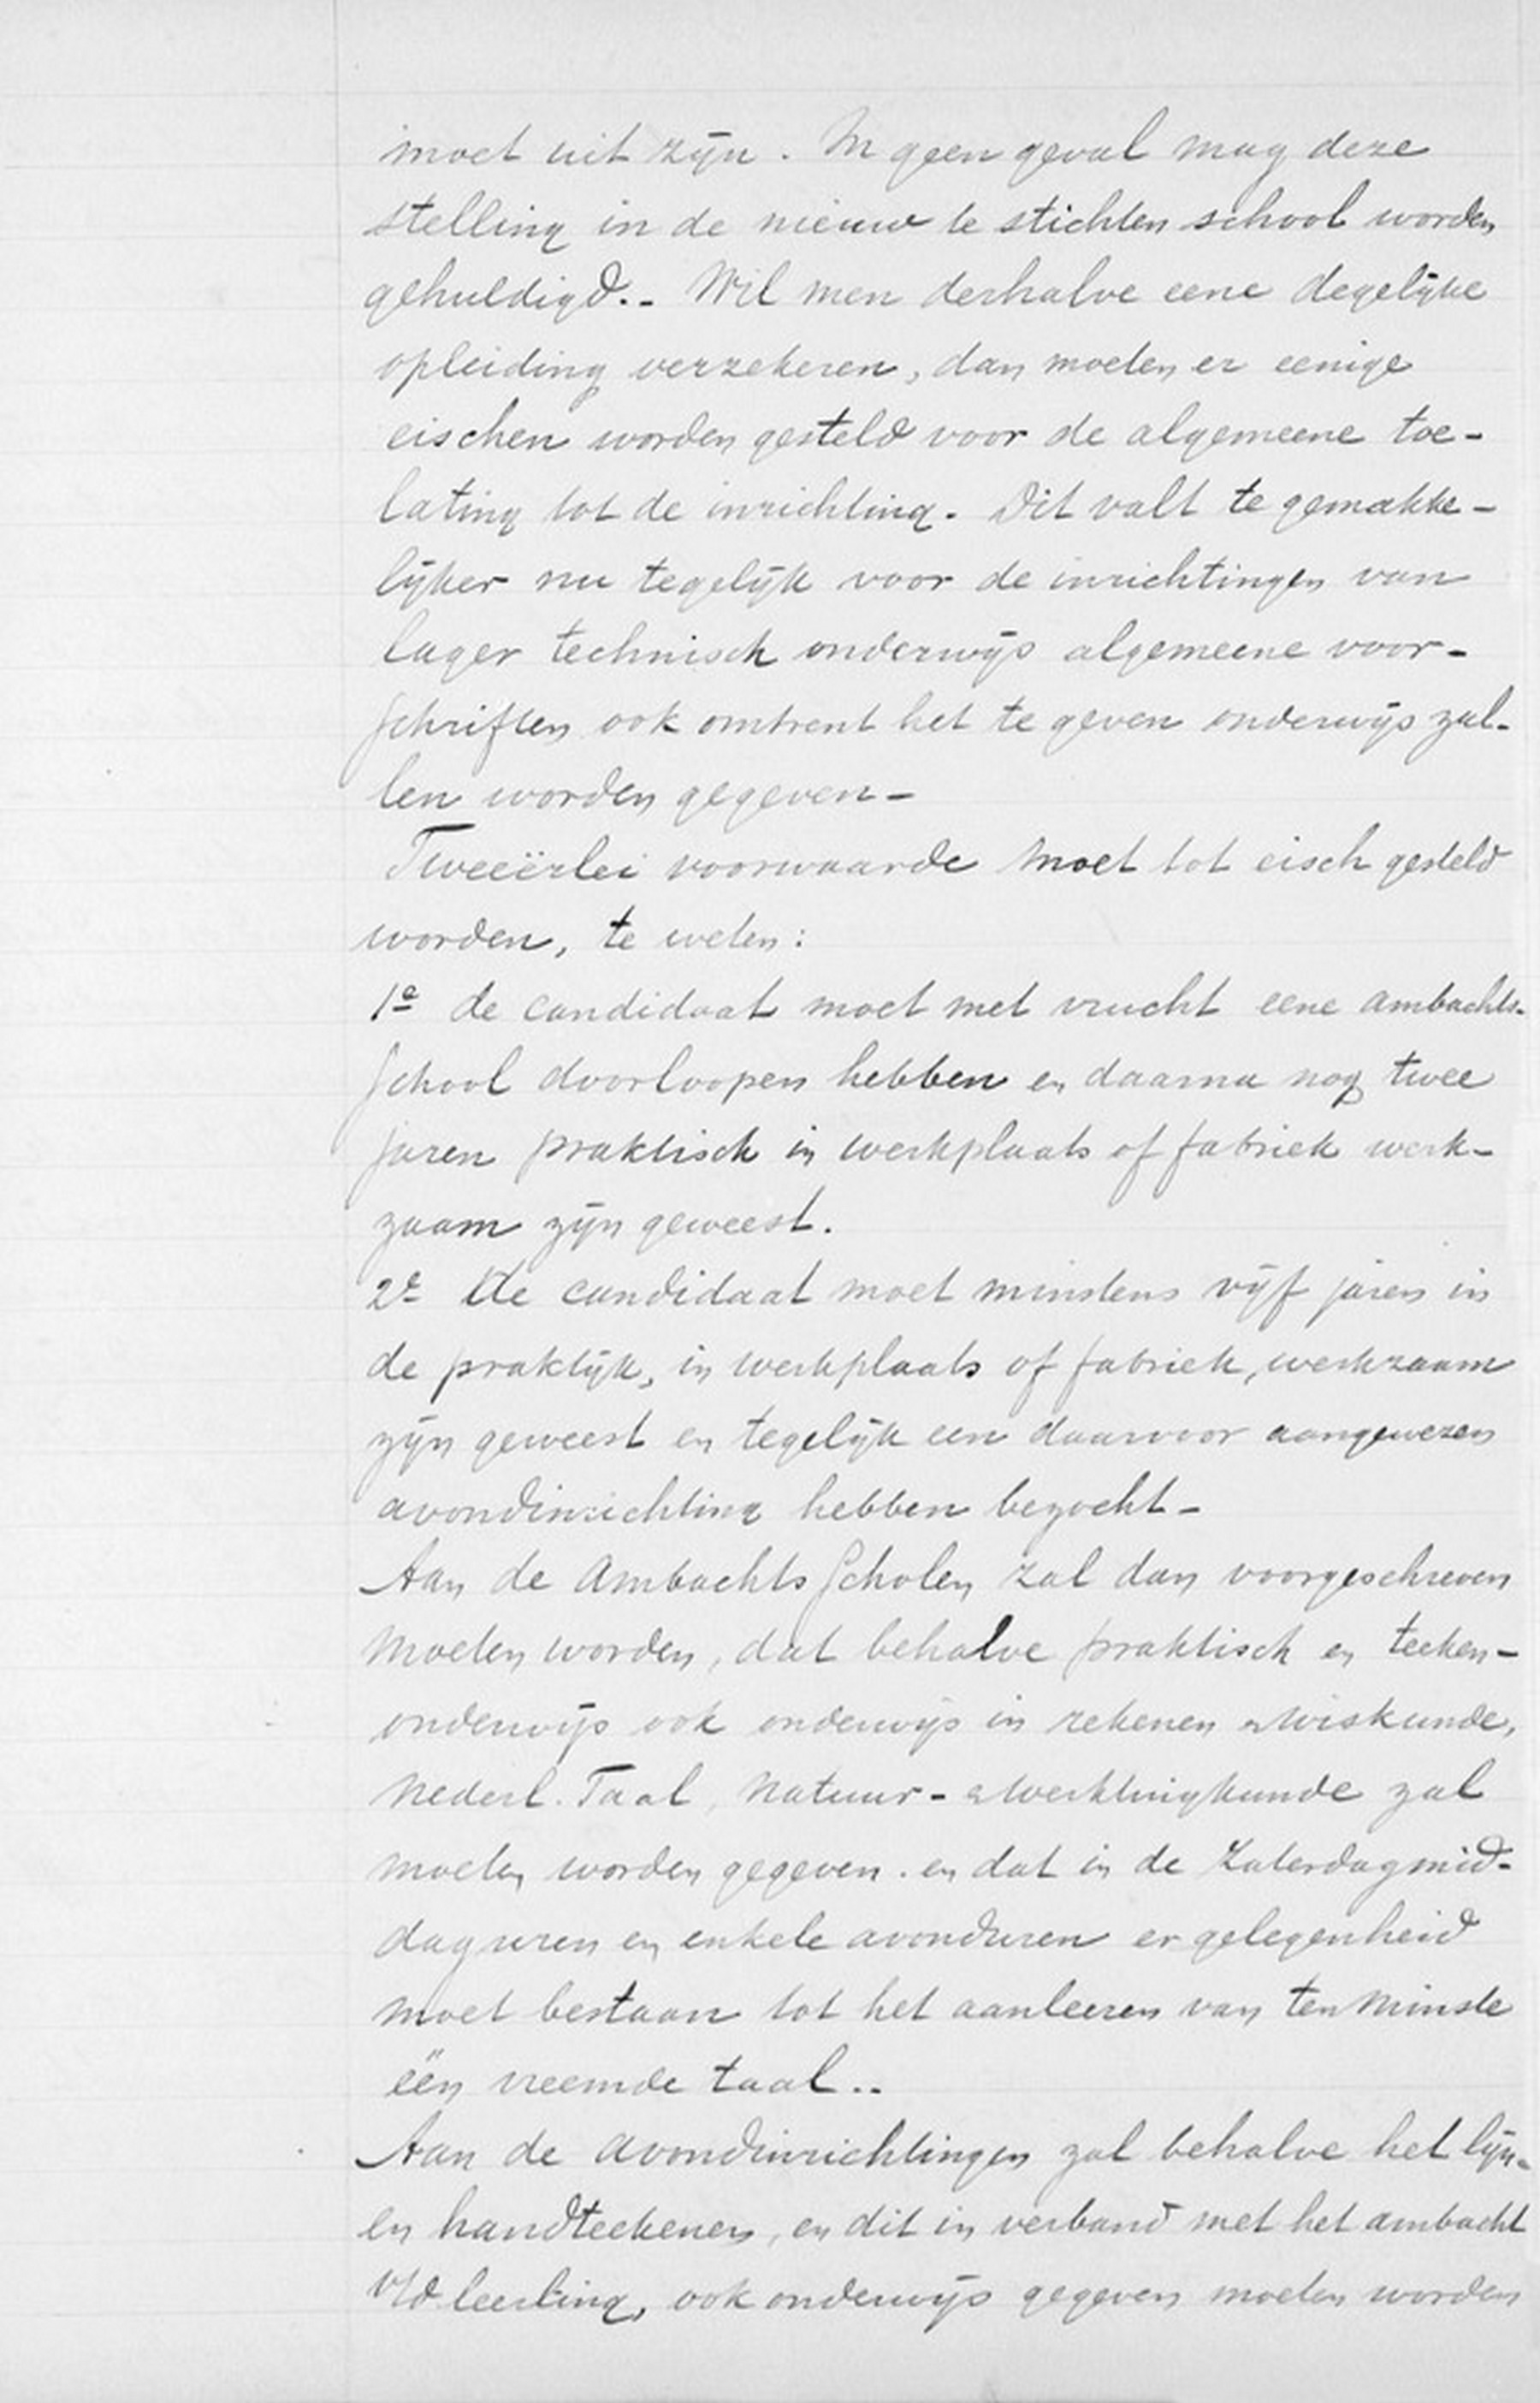 moet uit zijn. In geen geval mag deze
stelling in de nieuw te stichten school worden
gehuldigd.- Wil men derhalve eene degelijke
opleiding verzekeren, dan moeten er eenige
eischen worden gesteld voor de algemeene toe-
lating tot de inrichting. Dit valt te gemakke-
lijker nu tegelijk voor de inrichtingen van
lager technisch onderwijs algemeene voor-
schriften ook omtrent het te geven onderwijs zul-
len worden gegeven-
Tweeërlei voorwaarde moet tot eisch gesteld
worden, te weten:
1e de candidaat moet met vrucht eene ambachts-
school doorloopen hebben en daarna nog twee
jaren praktisch in werkplaats of fabriek werk-
zaam zijn geweest.
2e de candidaat moet minstens vijf jaren in
de praktijk, in werkplaats of fabriek, werkzaam
zijn geweest en tegelijk een daarvoor aangewezen
avondinrichting hebben bezocht-
Aan de Ambachts Scholen zal dan voorgeschreven
moeten worden, dat behalve praktisch en teeken-
onderwijs ook onderwijs in rekenen en wiskunde,
Nederl. Taal, Natuur- en werktuigkunde zal
moeten worden gegeven. en dat in de Zaterdagmid-
daguren en enkele avonduren er gelegenheid
moet bestaan tot het aanleeren van ten minste
één vreemde taal..
Aan de avondinrichtingen zal behalve het lijn-
en handteekenen, en dit in verband met het ambacht
v/d leerling, ook onderwijs gegeven moeten worden